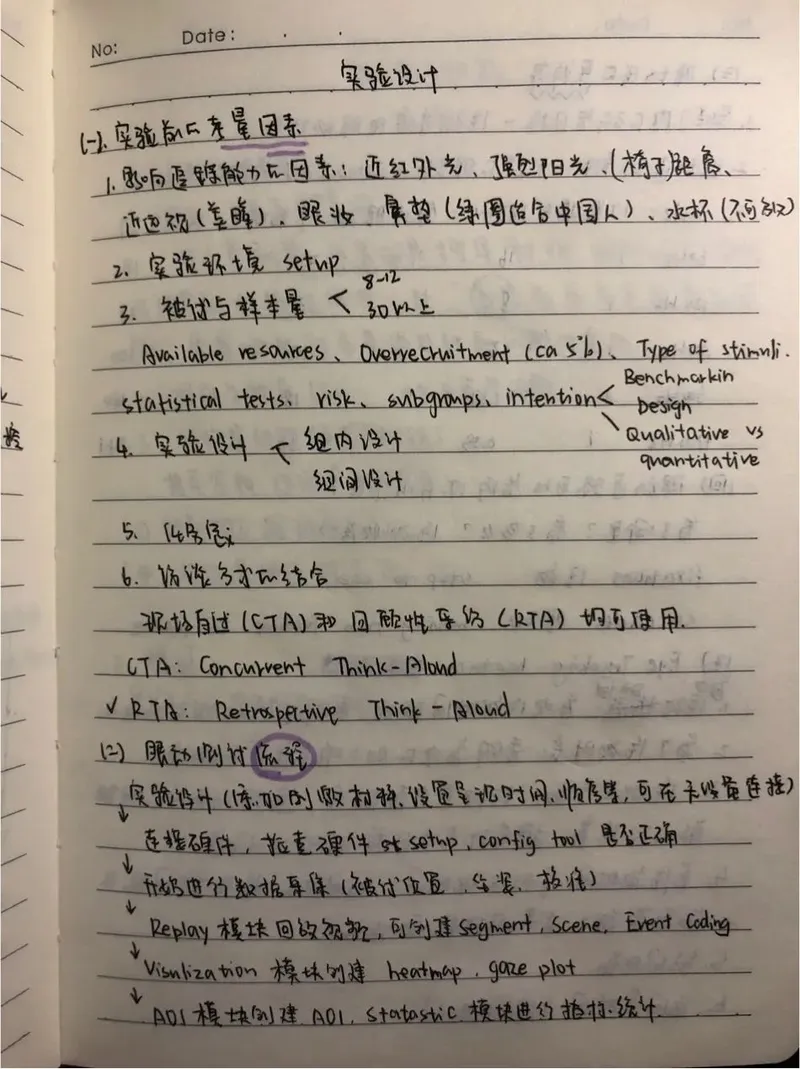 No:
Date:
实验设计
(一).实验前的考量因素
1.影响追踪能力的因素：近红外光、强烈阳光、(椅子)距离、
近视(美瞳)、眼妆、鼻垫(绿圈适合中国人)、水杯(不可以)
2. 实验环境 setup
3. 被试与样本量 < 8-12
30以上
Available resources、Overrecruitment (ca 5%)、Type of stimuli.
statistical tests、risk、subgroups、intention <
Benchmarkin
Design
Qualitative vs
quantitative
4. 实验设计 < 组内设计
组间设计
5.
6. 访谈方式的结合
现场自述(CTA)和回顾性(RTA)均可使用.
CTA: Concurrent Think-Aloud
✓ RTA: Retrospective Think-Aloud
(二) 眼动测试流程
实验设计(添加刺激材料、设置呈现时间、顺序等，可在未设备连接)
↓ 连接硬件，检查硬件 setup, config tool 是否正确
↓ 开始进行数据采集(被试位置、坐姿、校准)
↓ Replay 模块回放视频，可创建 Segment, Scene, Event Coding
↓ Visulization 模块创建 heatmap, gaze plot
↓ AOI 模块创建 AOI, Statastic 模块进行指标统计